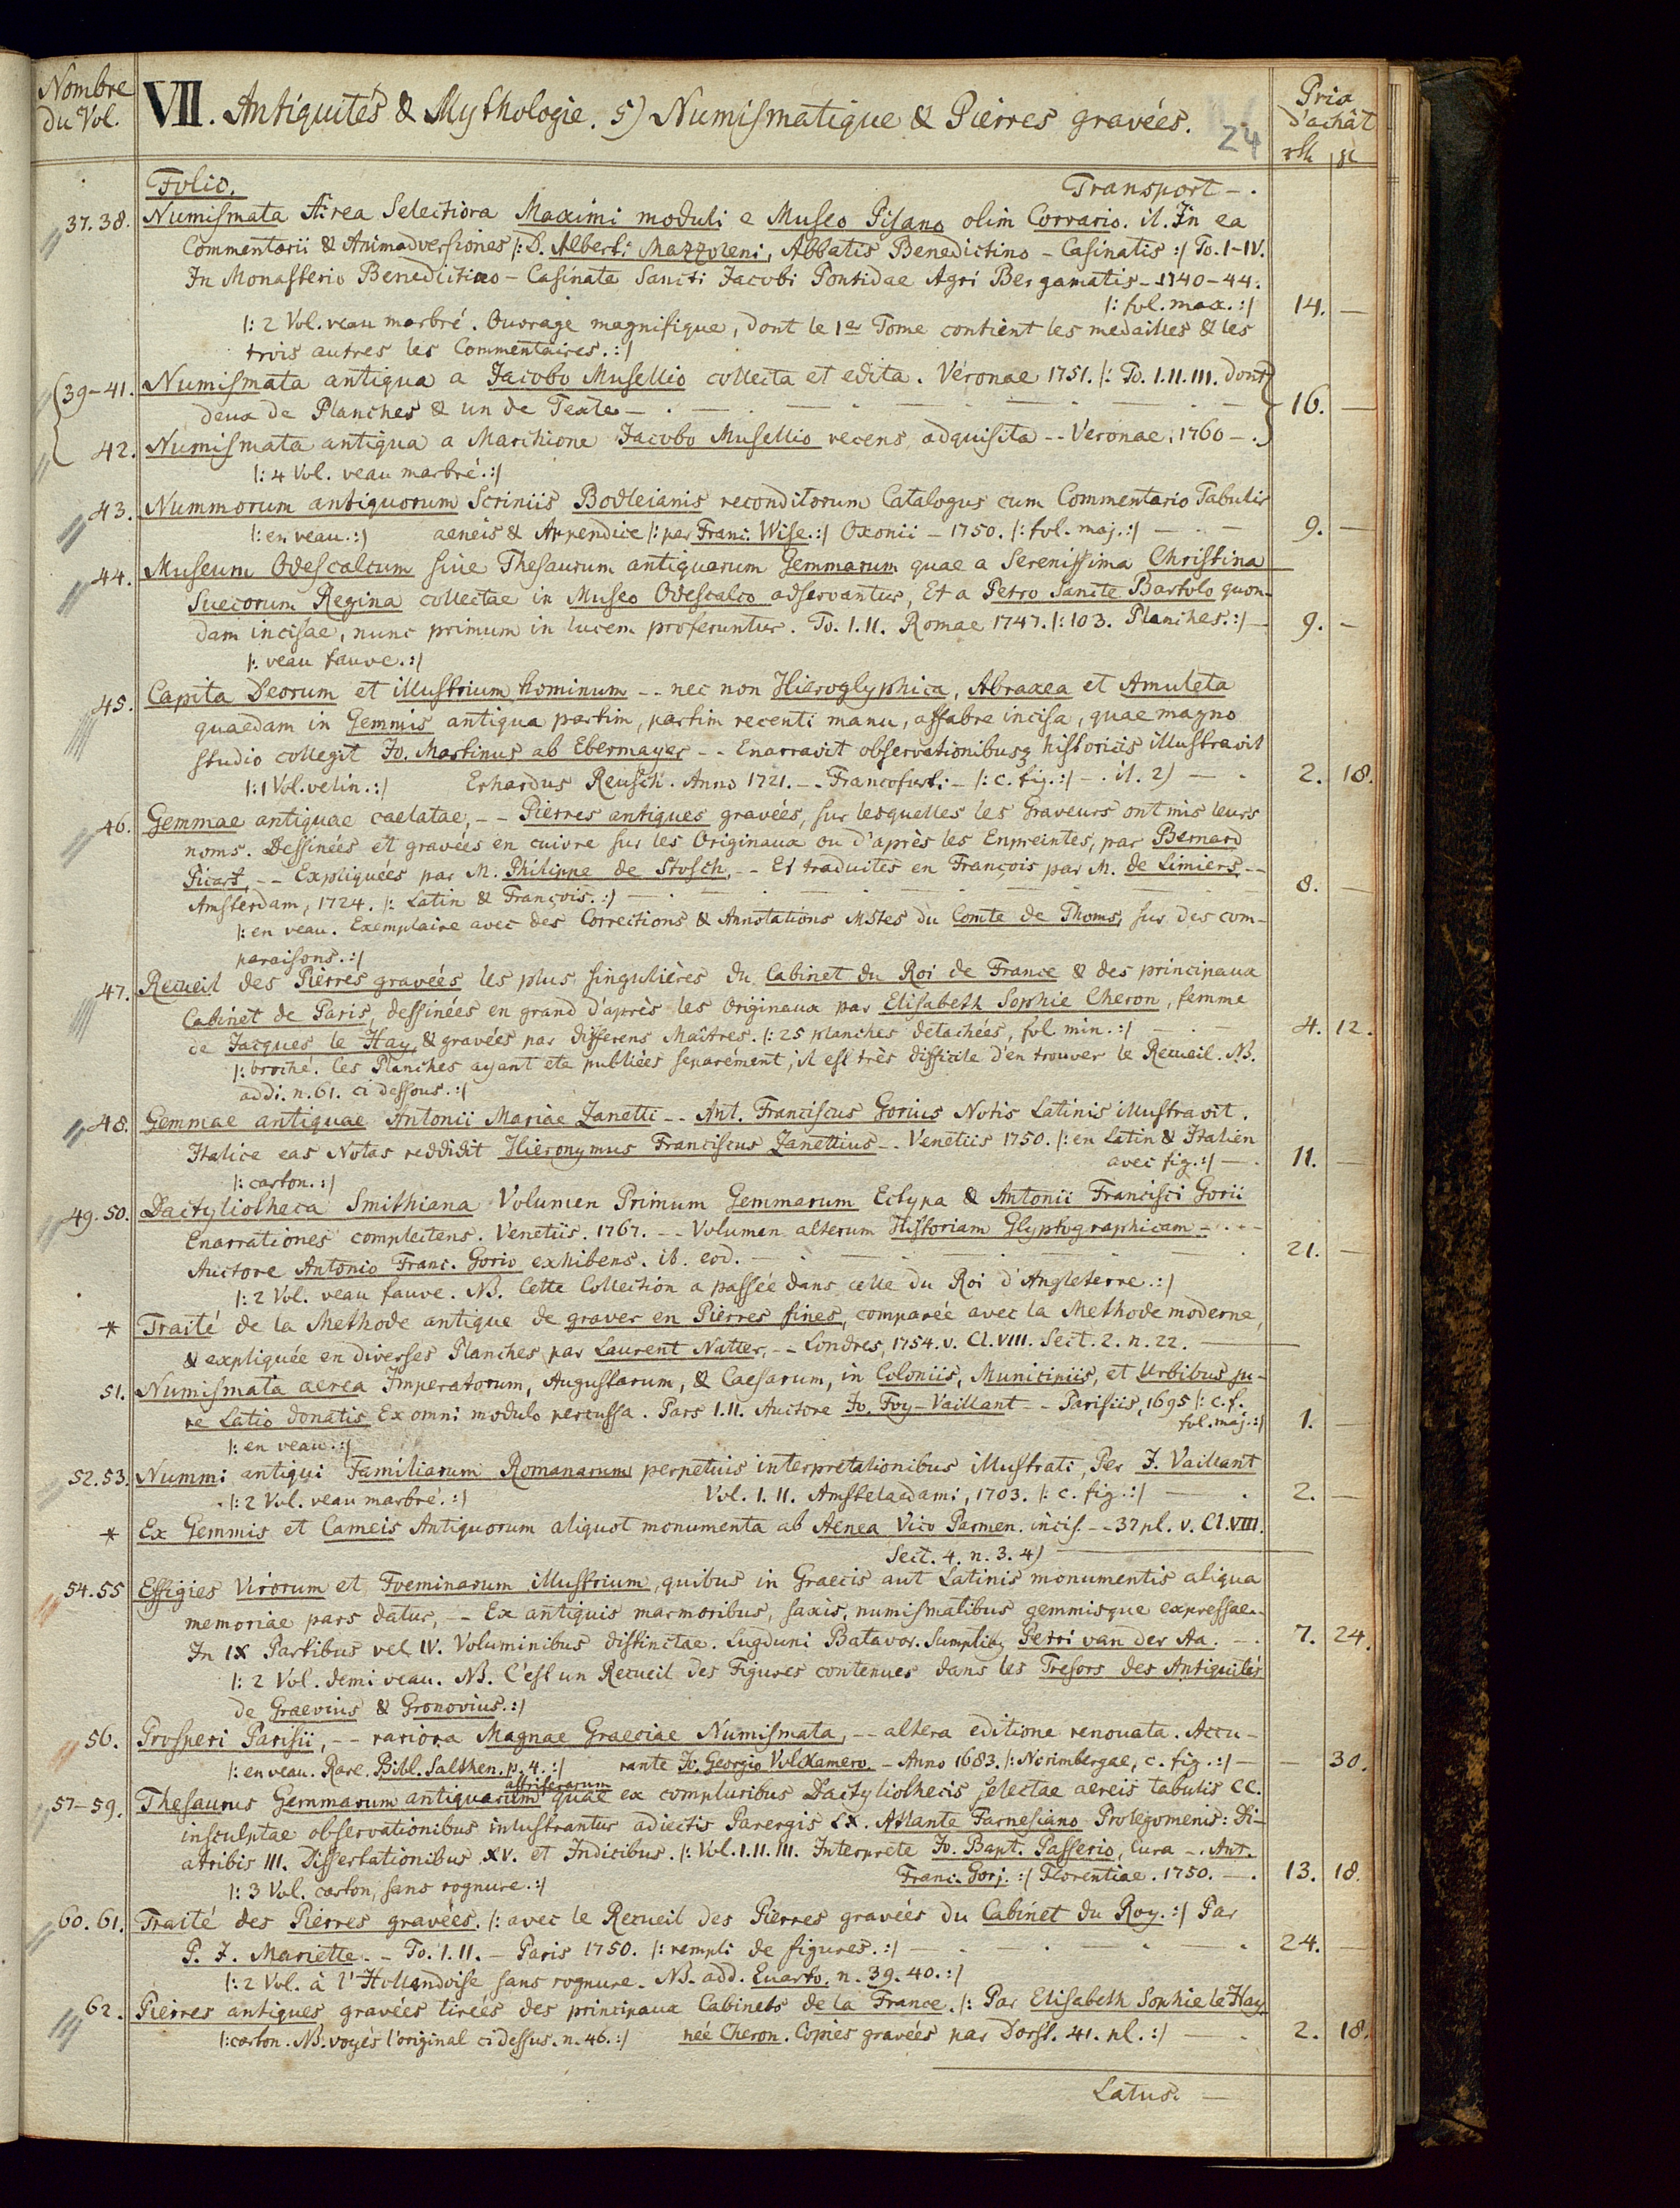 Nombre du Vol.
VII. Antiquités & Mythologie. 5) Numismatique & Pierres gravées.
24
Prix d'achât
rth gl
Folio. Transport - .
37. 38. Numismata Aerea Selectiora Maximi moduli e Museo Pisano olim Corrario. it. In ea
Commentarii & Animadversiones |: D. Alberti Mazzoleni, Abbatis Benedictino - Casinatis :| To. I-IV.
In Monasterio Benedictino - Casinate Sancti Jacobi Pontidae Agri Bergamatis - 1740-44.
|: fol. max. :| 14. —
|: 2 Vol. veau marbré. Ouvrage magnifique, dont le 1er Tome contient les medailles & les
trois autres les Commentaires. :|
39-41. Numismata antiqua a Jacobo Musellio collecta et edita. Veronae 1751. |: To. I. II. III. dont
deux de Planches & un de Texte - . — . — . — . — 16. —
42. Numismata antiqua a Marchione Jacobo Musellio recens adquisita -- Veronae, 1760 - .
|: 4 Vol. veau marbré. :|
43. Nummorum antiquorum Scriniis Bodleianis reconditorum Catalogus cum Commentario Tabulis
|: en veau. :| aeneis & Appendice |: par Franc. Wise. :| Oxonii - 1750. |: fol. maj. :| — . — 9. —
44. Museum Odescalcum sive Thesaurum antiquarum Gemmarum quae a Serenissima Christina
Suecorum Regina collectae in Museo Odescalco adservantur, Et a Petro Sancte Bartolo quon-
dam incisae, nunc primum in lucem proferuntur. To. I. II. Romae 1747. |: 103. Planches. :| - 9. -
|: veau fauve. :|
45. Capita Deorum et illustrium hominum -- nec non Hieroglyphica, Abraxea et Amuleta
quaedam in Gemmis antiqua partim, partim recenti manu, affabre incisa, quae magno
studio collegit Jo. Martinus ab Ebermayer -- Enarravit observationibusq historicis illustravit
|: 1 Vol. velin. :| Erhardus Reusch. Anno 1721. -- Francofurti - |: c. fig. :| - . it. 2) — . 2. 18.
46. Gemmae antiquae caelatae, -- Pierres antiques gravées, sur lesquelles les Graveurs ont mis leurs
noms. Dessinées et gravées en cuivre sur les Originaux ou d'après les Enpreintes, par Bernard
Picart, -- Expliquées par M. Philippe de Stosch, -- Et traduites en François par M. de Limiers, --
Amsterdam, 1724. |: Latin & François. :| — . — . — 8. —
|: en veau. Exemplaire avec des Corrections & Annotations MStes du Comte de Thoms, sur des com-
paraisons. :|
47. Recueil des Pierres gravées les plus singulières du Cabinet du Roi de France & des principaux
Cabinet de Paris, dessinées en grand d'après les Originaux par Elisabeth Sophie Cheron, femme
de Jacques le Hay, & gravées par differens Maîtres. |: 25 planches detachées, fol min. :| — . — 4. 12.
|: broché. Les Planches ayant ete publiées separément, il est très difficile d'en trouver le Recueil. NB.
addi. n. 61. ci dessous. :|
48. Gemmae antiquae Antonii Mariae Zanetti -- Ant. Franciscus Gorius Notis Latinis illustravit.
Italice eas Notas reddidit Hieronymus Franciscus Zanettius -- Venetiis 1750. |: en Latin & Italien
avec fig. :| - . 11. —
|: carton. :|
49. 50. Dactyliotheca Smithiana Volumen Primum Gemmarum Ectypa & Antonii Francisci Gorii
Enarrationes complectens. Venetiis. 1767. -- Volumen alterum Historiam Glyptographicam - . - -
Auctore Antonio Franc. Gorio exhibens. ib. eod. — . — . — 21. —
|: 2 Vol. veau fauve. NB. Cette Collection a passée dans celle du Roi d'Angleterre. :|
* Traité de la Methode antique de graver en Pierres fines, comparée avec la Methode moderne,
& expliquée en diverses Planches par Laurent Natter, -- Londres, 1754. v. Cl. VIII. Sect. 2. n. 22. —
51. Numismata aerea Imperatorum, Augustarum, & Caesarum, in Coloniis, Municipiis, et Urbibus ju-
re Latio donatis Ex omni modulo percussa. Pars I. II. Auctore Jo. Foy-Vaillant -- Parisiis, 1695 |: c. f.
fol. maj. :| 1. —
|: en veau. :|
52. 53. Nummi antiqui Familiarum Romanarum perpetuis interpretationibus illustrati, Per J. Vaillant
|: 2 Vol. veau marbré. :| Vol. I. II. Amstelaedami, 1703. |: c. fig. :| — . 2. —
* Ex Gemmis et Cameis Antiquorum aliquot monumenta ab Aenea Vico Parmen. incis. -- 37 pl. v. Cl. VIII.
Sect. 4. n. 3. 4) —
54. 55 Effigies Virorum et Foeminarum illustrium, quibus in Graecis aut Latinis monumentis aliqua
memoriae pars datur, -- Ex antiquis marmoribus, saxis, numismatibus gemmisque expressae..
In IX Partibus vel IV. Voluminibus distinctae. Lugduni Batavor. Sumptibq Petri van der Aa. - . 7. 24.
|: 2 Vol. demi veau. NB. C'est un Recueil des Figures contenues dans les Tresors des Antiquités
de Graevius & Gronovius. :|
56. Prosperi Parisii, -- rariora Magnae Graeciae Numismata, -- altera editione renovata. Accu-
|: en veau. Rare. Bibl. Salthen. p. 4. :| rante Jo. Georgio Volckamero. - Anno 1683. |: Norimbergae, c. fig. :| - — 30.
astriferarum
57-59. Thesaurus Gemmarum antiquarum quae ex compluribus Dactyliothecis selectae aereis tabulis CC.
insculptae observationibus inlustrantur adiectis Parergis LX. Atlante Farnesiano Prolegomenis: Di-
atribis III. Dissertationibus XV. et Indicibus. |: Vol. I. II. III. Interprete Jo. Bapt. Passerio, Cura -. Ant.
Franc. Gorj. :| Florentiae. 1750. - . 13. 18.
|: 3 Vol. carton, sans rognure. :|
60. 61. Traité des Pierres gravées. |: avec le Recueil des Pierres gravées du Cabinet du Roy. :| Par
P. J. Mariette -- To. I. II. - Paris 1750. |: rempli de figures. :| — . — . — 24. —
|: 2 Vol. à l'Hollandoise sans rognure. NB. add. Quarto. n. 39. 40. :|
62. Pierres antiques gravées tirées des principaux Cabinets de la France. |: Par Elisabeth Sophie le Hay
|: carton. NB. voyés l'original ci dessus. n. 46. :| neé Cheron. Copies gravées par Dorst. 41. pl. :| — . 2. 18.
Latus. —